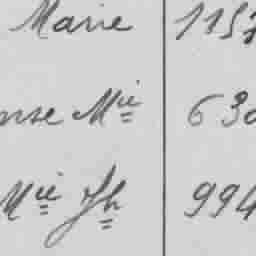 Marie 1157
nse Mie 630
Mie Jh 994